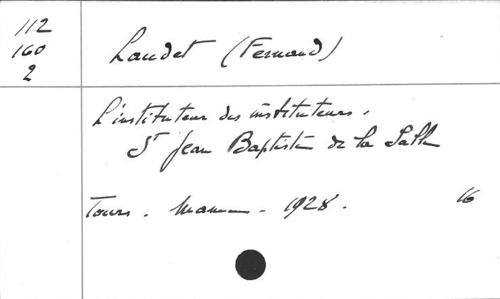 112
160
2
Laudet (Fernand)
L'instituteur des instituteurs.
St Jean Baptiste de la Salle
Tours. Mame. 1928. 16